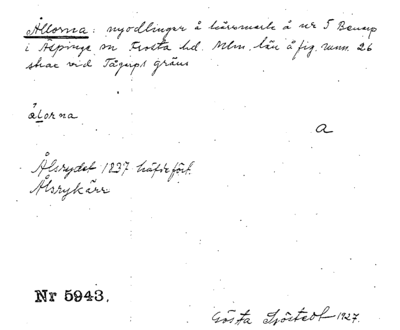 Ållorna: nyodlingar å kärrmark å nr 5 Benarp
i Äspinge sn Frosta hd. Mlm. län å fig. rumn. 26
strax vid Tågarps gräns
ålorna
a
Ålsrydet 1837 häfdeförl.
Ålsrykärr
Nr 5943.
Gösta Sjöstedt 1927.